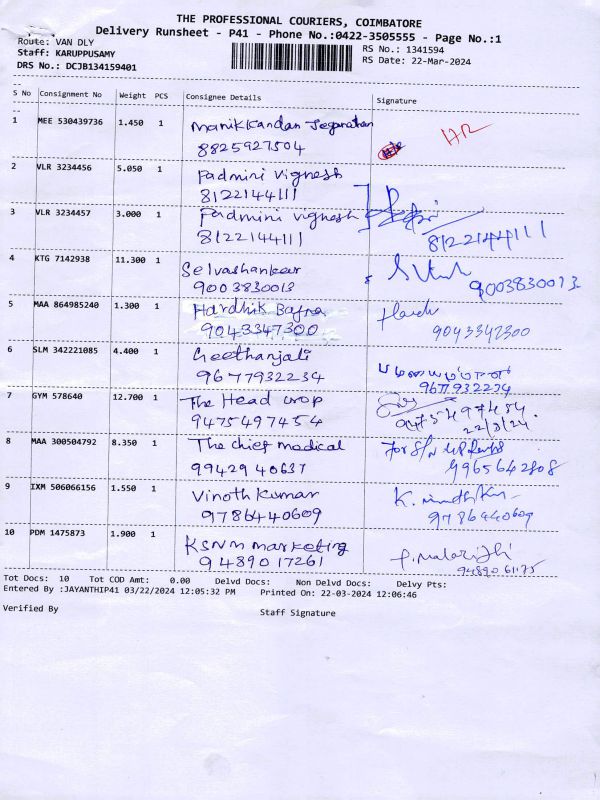 THE PROFESSIONAL COURIERS, COIMBATORE
Delivery Runsheet - P41 - Phone No.:0422-3505555 - Page No.:1
Route: VAN DLY
RS No.: 1341594
Staff: KARUPPUSAMY
RS Date: 22-Mar-2024
DRS No.: DCJB134159401
S No Consignment No Weight PCS Consignee Details Signature
1 MEE 530439736 1.450 1 Manikkandan Jeganathan
8825927504
HR
2 VLR 3234456 5.050 1 Padmini Vignesh
8122144111
3 VLR 3234457 3.000 1 Padmini Vignesh
8122144111 8122144111
4 KTG 7142938 11.300 1 Selvashankar
9003830013 9003830013
5 MAA 864985240 1.300 1 Hardhik Bafna
9043347300 9043347300
6 SLM 342221085 4.400 1 Geethanjali
9677932234 9677932234
7 GYM 578640 12.700 1 The Head crop
9475497454 9475497454.
22/3/24
8 MAA 300504792 8.350 1 The chief medical
9942940637 9965642808
9 IXM 506066156 1.550 1 Vinoth Kumar
9786440609 9786440609
10 PDM 1475873 1.900 1 KSNM marketing
9489017261 9489061175
Tot Docs: 10 Tot COD Amt: 0.00 Delvd Docs: Non Delvd Docs: Delvy Pts:
Entered By :JAYANTHIP41 03/22/2024 12:05:32 PM Printed On: 22-03-2024 12:06:46
Verified By Staff Signature